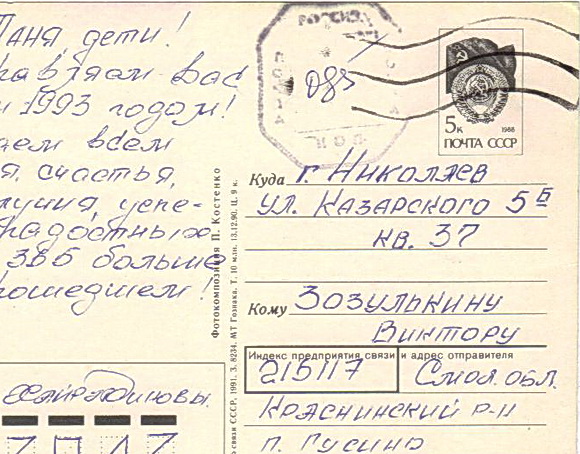 Таня, дети!
вас
1993 годом!
всем
счастья,
успе-
радостных
больше
прошедшем!
Фотокомпозиция П. Костенко
МТ Гознака. Т. 10 млн. 13.12.90. Ц. 9 к.
связи СССР, 1991. З. 8234.
083
5к
1988
ПОЧТА СССР
Куда г. Николаев
ул. Казарского 5Б
кв. 37
Кому Зозулькину
Виктору
Индекс предприятия связи и адрес отправителя
215117 Смол. обл.
Краснинский р-н
п. Гусино